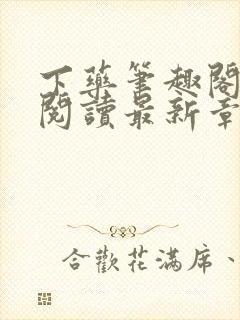 下藥筆趣閣
閱讀最新章
合歡花滿席、